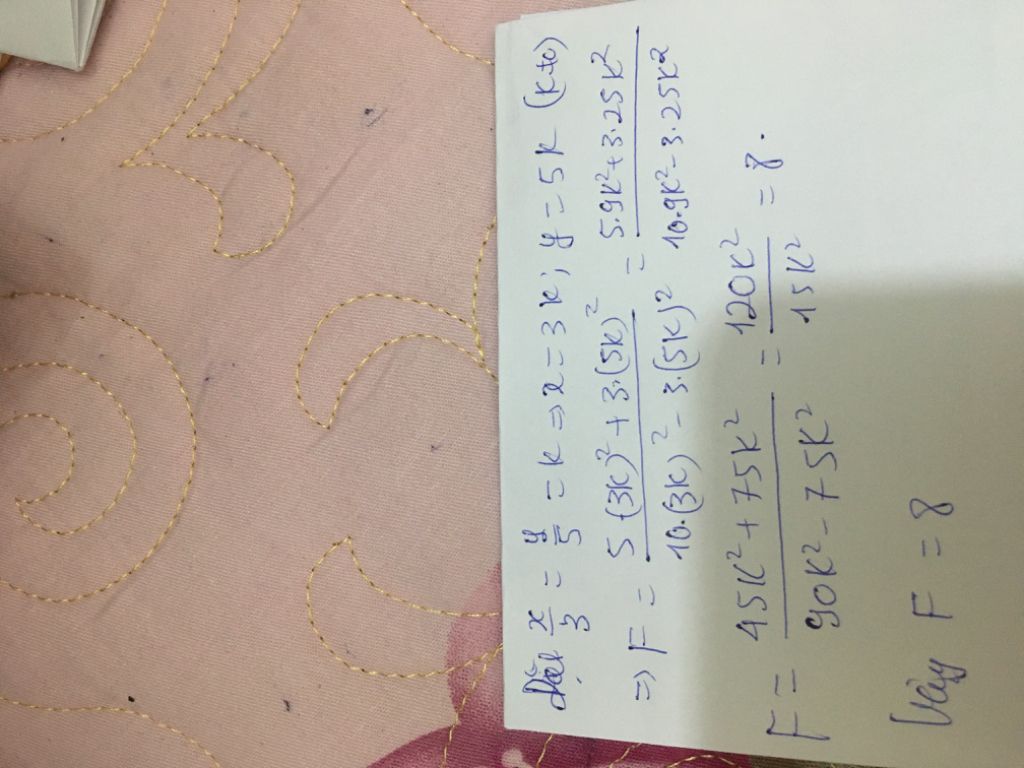 Đặt x/3 = y/5 = k ⇒ x = 3k; y = 5k (k≠0)
⇒ F = (5.(3k)² + 3.(5k)²)/(10.(3k)² - 3.(5k)²) = (5.9k² + 3.25k²)/(10.9k² - 3.25k²)
F = (45k² + 75k²)/(90k² - 75k²) = 120k²/15k² = 8.
Vậy F = 8